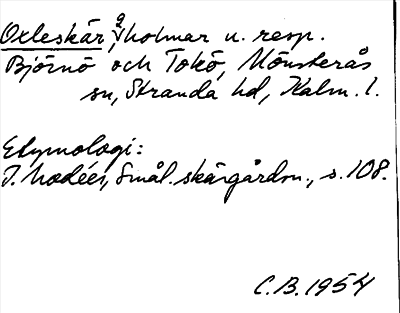 Oxleskär, 2 holmar u. resp.
Björnö och Tokö, Mönsterås
sn, Stranda hd, Kalm. l.
Etymologi:
I. Modéer, Smål. skärgårdsn., s. 108.
C.B. 1954